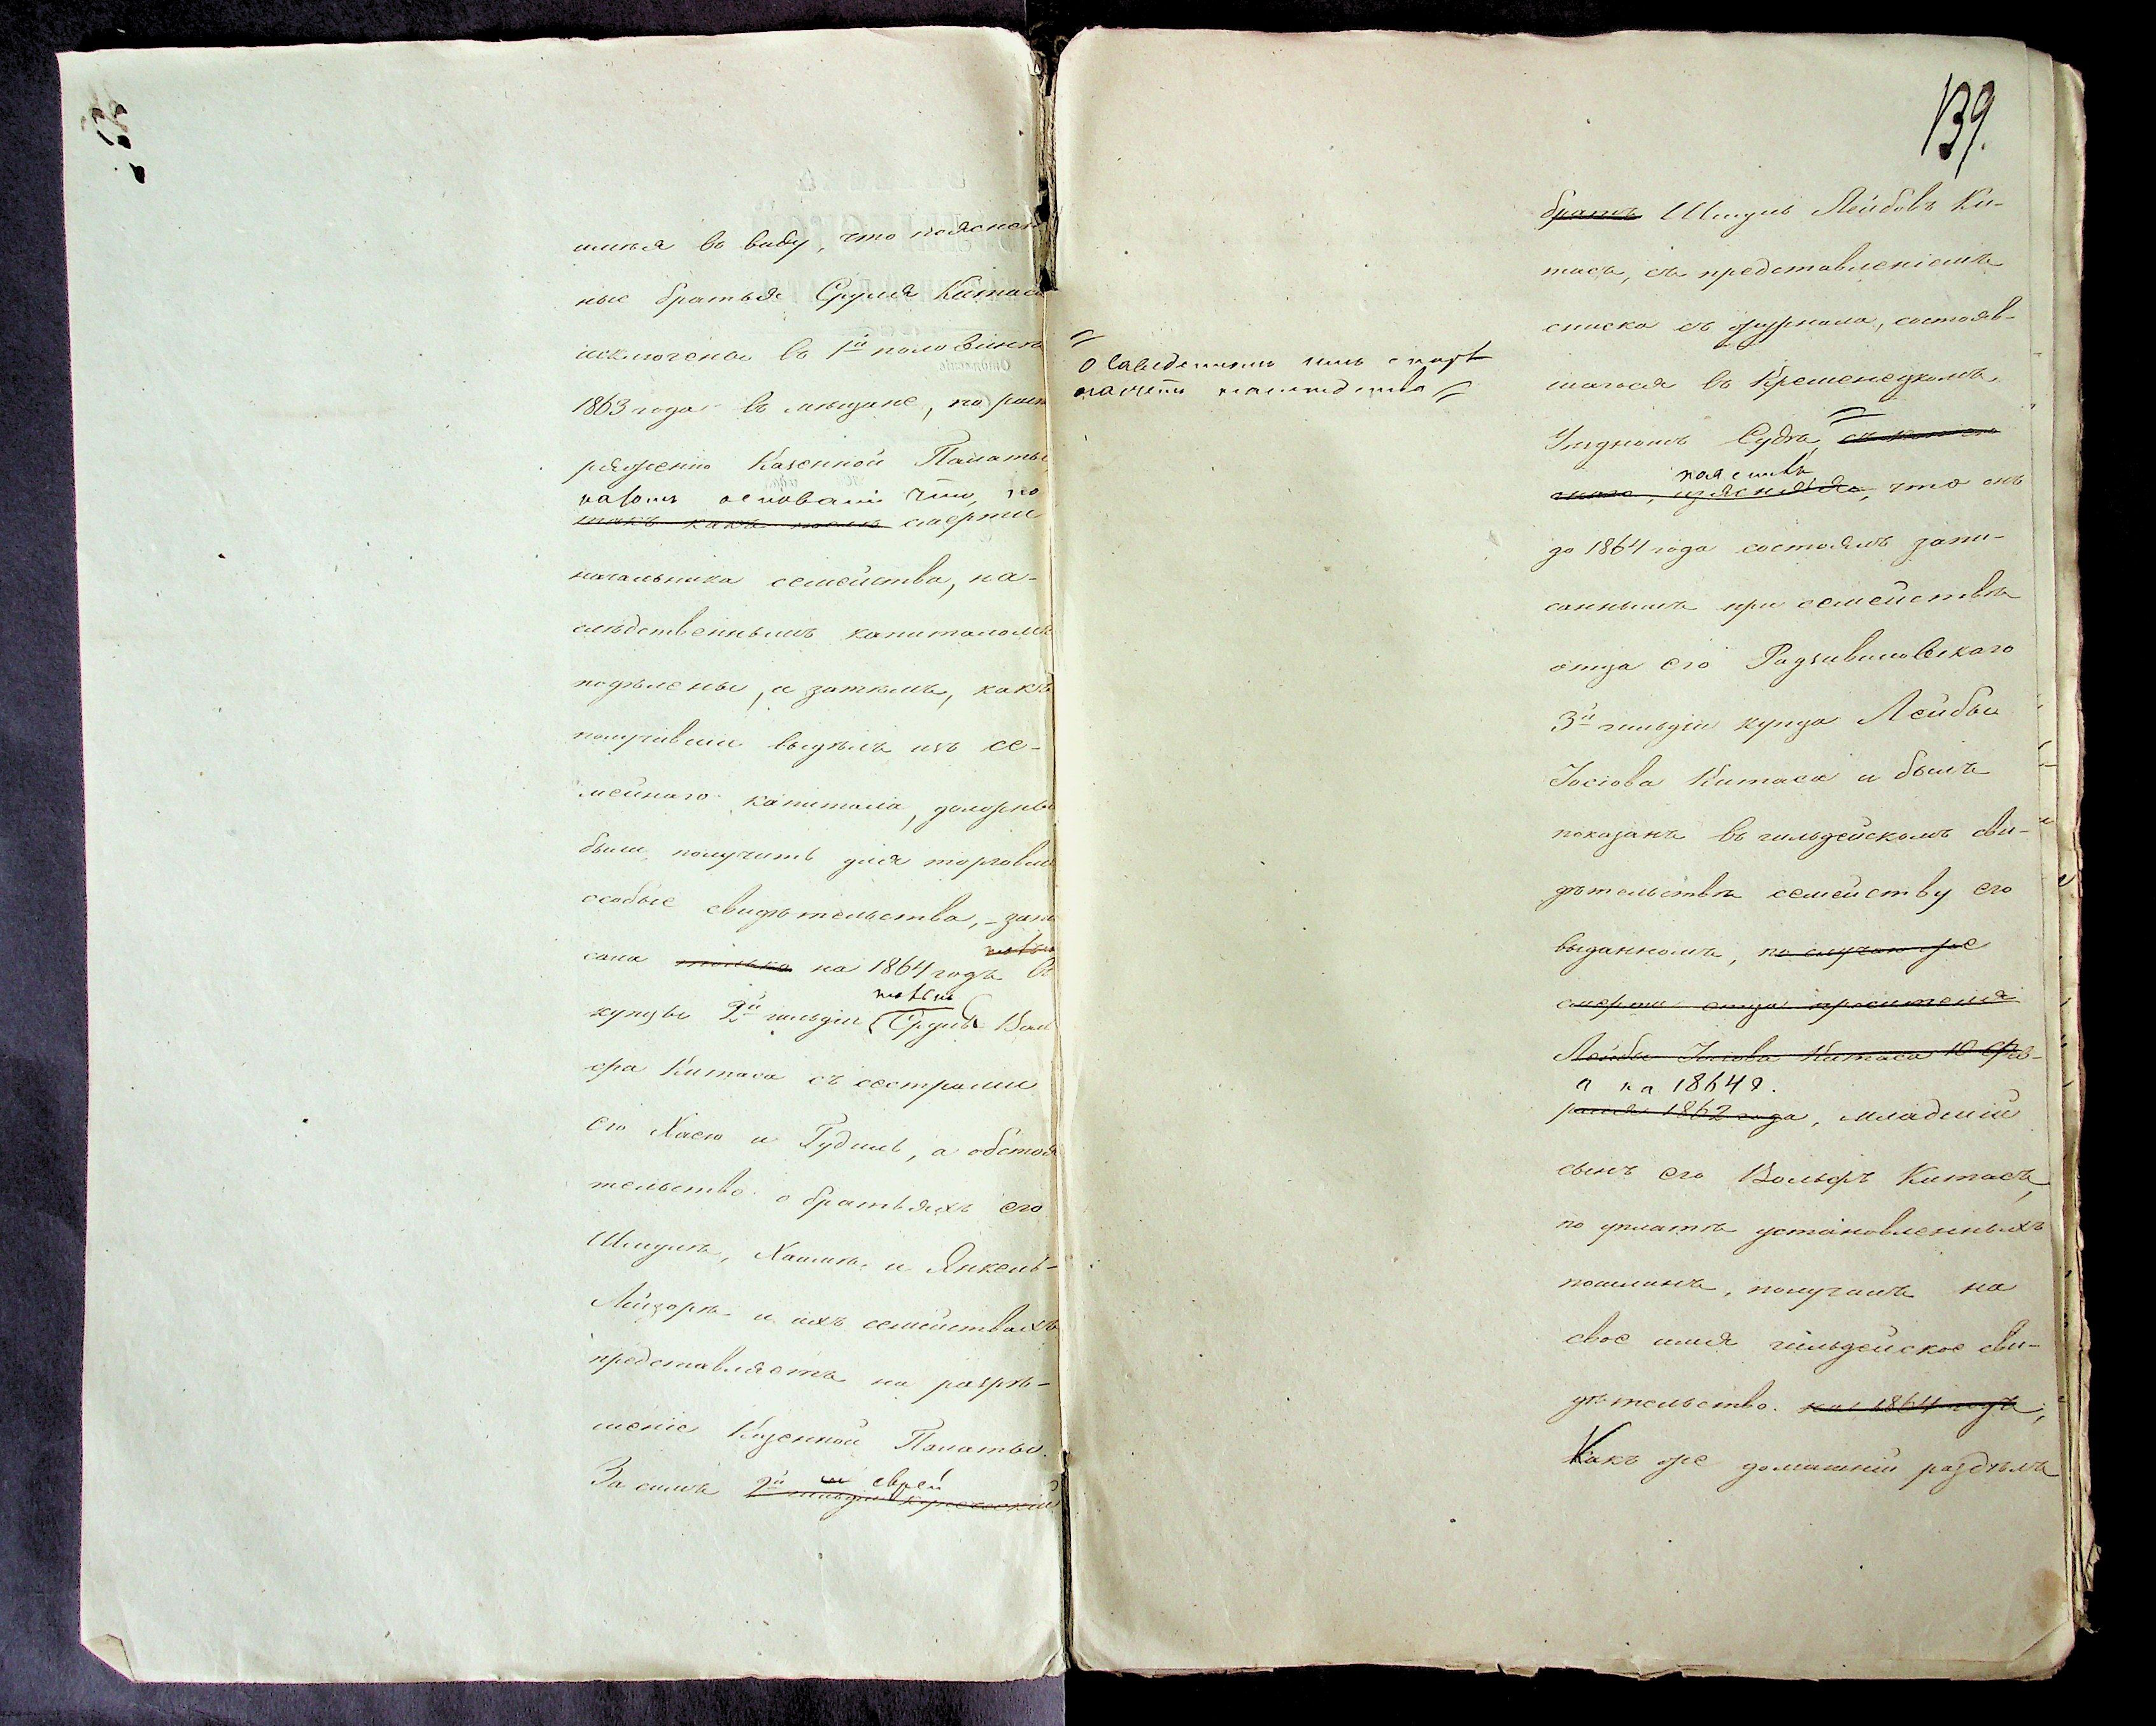 имѣя въ виду, что поясnен
ные братья Сруля Китаса
исключены въ 1й половинѣ
1863 года въ мѣщане, по расп
ряженію Казенной Палаты
на томъ основаніи что, по
такъ какъ послѣ смерти
начальника семейства, на-
слѣдственнымъ капиталомъ
подѣлены, и затѣмъ, какъ
получившіе выдѣлъ изъ се-
мейнаго капитала, должны
были получить для торговли
особые свидѣтельства, - запи
сана только на 1864 годъ въ
купцы 2й гильдіи Сруль Воль
фа Китаса съ сестрами
его Хаею и Гудлей, а обстоя
тельство о братьяхъ его
Шмулѣ, Хаимѣ и Янкель-
Лейзорѣ и ихъ семействахъ
представляетъ на разрѣ-
шеніе Казенной Палаты.
За симъ 2й гильдіи еврей
139.
братъ Шмуль Лейбовъ Ки-
тасъ, съ представленіемъ
списка съ журнала, состояв-
шагося въ Кременецкомъ
Уѣздномъ Судѣ,
изъясняя, что онъ
до 1864 года состоялъ запи-
саннымъ при семействѣ
отца его Радзивиловскаго
3й гильдіи купца Лейбы
Іосіова Китаса и былъ
показанъ въ гильдейскомъ сви-
дѣтельствѣ семейству его
выданномъ, по случаю же
смерти отца просителя
Лейбы Іосіова Китаса 10 Фев-
а на 1864 г.
раля 1862 года, младшій
сынъ его Вольфъ Китасъ,
по уплатѣ установленныхъ
пошлинъ, получилъ на
свое имя гильдейское сви-
дѣтельство на 1864 годъ,
Какъ же домашній раздѣлъ